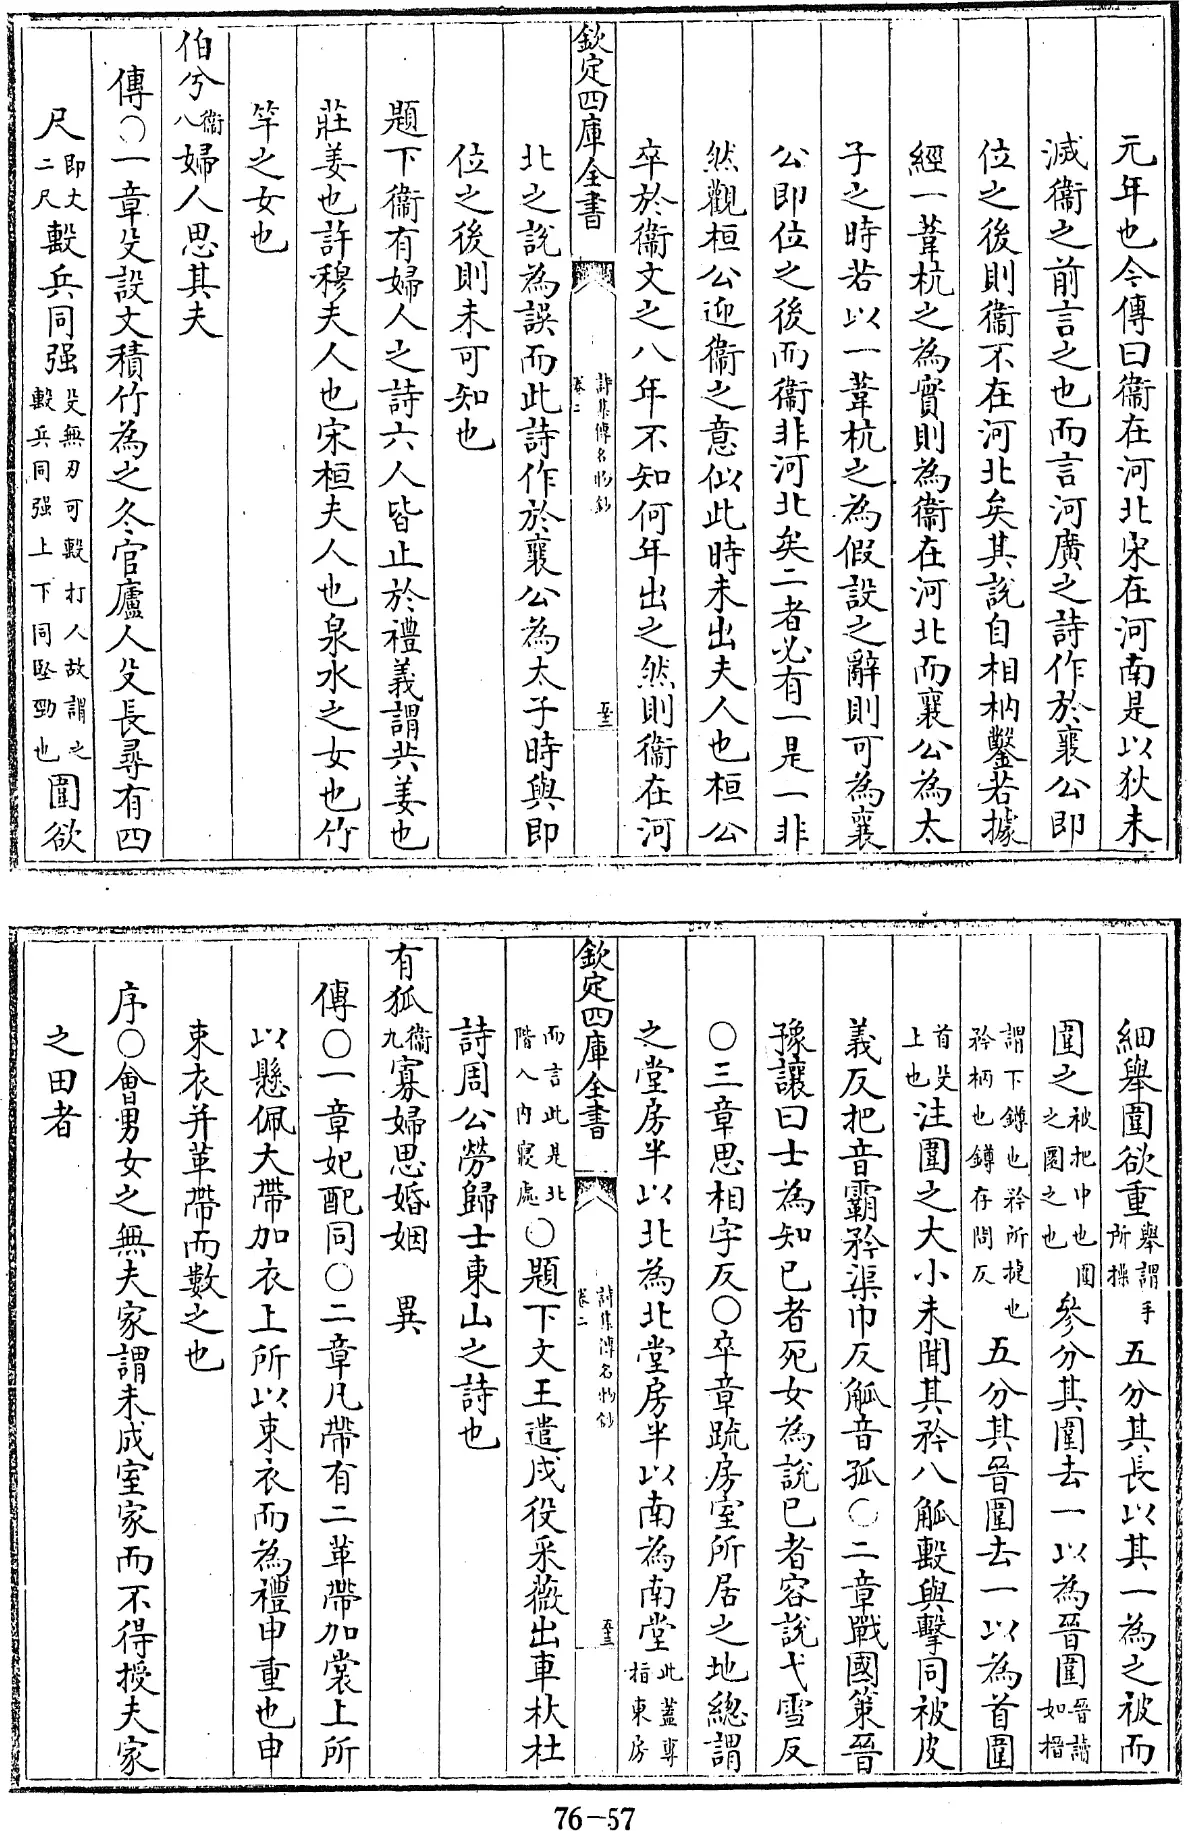 元年也今傳曰衞在河北宋在河南是以狄未
滅衞之前言之也而言河廣之詩作於襄公即
位之後則衞不在河北矣其説自相枘鑿若據
經一葦杭之為實則為衞在河北而襄公為太
子之時若以一葦杭之為假設之辭則可為襄
公即位之後而衞非河北矣二者必有一是一非
然觀桓公迎衞之意似此時未出夫人也桓公
卒於衞文之八年不知何年出之然則衞在河
欽定四庫全書
詩集傳名物鈔
卷二
北之説為誤而此詩作於襄公為太子時與即
位之後則未可知也
題下衞有婦人之詩六人皆止於禮義謂共姜也
莊姜也許穆夫人也宋桓夫人也泉水之女也竹
竿之女也
伯兮衞八婦人思其夫
傳○一章殳設文積竹為之冬官廬人殳長尋有四
尺即丈二尺毄兵同强殳無刃可毄打人故謂之毄兵同强上下同堅勁也圍欲
細舉圍欲重舉謂手所操五分其長以其一為之被而
圍之被把中也圍之圜之也參分其圍去一以為晉圍晉讀如搢
謂下鐏也矜所捷也矜柄也鐏存悶反五分其晉圍去一以為首圍
首殳上也注圍之大小未聞其矜八觚毄與擊同被皮
義反把音霸矜渠巾反觚音孤○二章戰國策晉
豫讓曰士為知已者死女為説已者容説弋雪反
○三章思相字反○卒章疏房室所居之地總謂
之堂房半以北為北堂房半以南為南堂此蓋專指東房
欽定四庫全書
詩集傳名物鈔
卷二
而言此是北階入内寢處○題下文王遣戍役采薇出車杕杜
詩周公勞歸士東山之詩也
有狐衞九寡婦思婚姻 異
傳○一章妃配同○二章凡帶有二革帶加裳上所
以懸佩大帶加衣上所以束衣而為禮申重也申
束衣并革帶而數之也
序○會男女之無夫家謂未成室家而不得授夫家
之田者
76-57